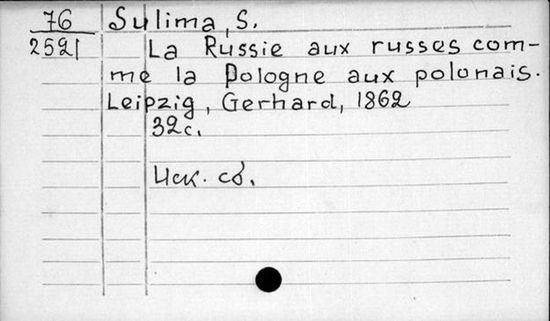 76 Sulima, S.
2521 La Russie aux russes com-
me la Pologne aux polonais.
Leipzig, Gerhard, 1862
32с.
Иск. сб.